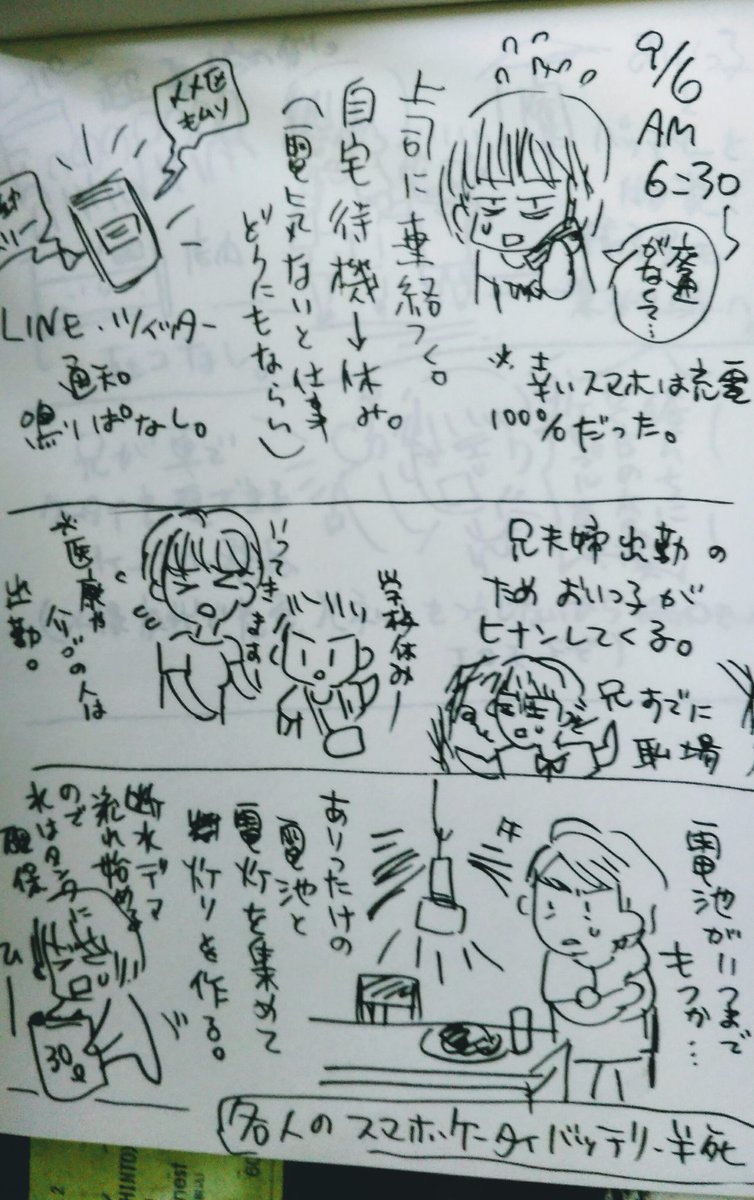 9/6
AM
6:30〜
交通
がなくて…
※幸いスマホは充電
100%だった。
上司に連絡つく。
自宅待機→休み。
(電気ないと仕事
どうにもならない)
LINE・ツイッター
通知
鳴りぱなし。
兄夫婦出勤の
ためおいっ子が
ヒナンしてくる。
兄すでに
職場
学校休みー
いってきますー
*医療や
介ゴの人は
出勤。
電池がいつまで
もつか…
ありったけの
電池と
電灯を集めて
灯りを作る。
断水デマ
流れ始める
ので
水はタンクに
確保
ひー
30ℓ
各人のスマホ・ケータイバッテリー半死